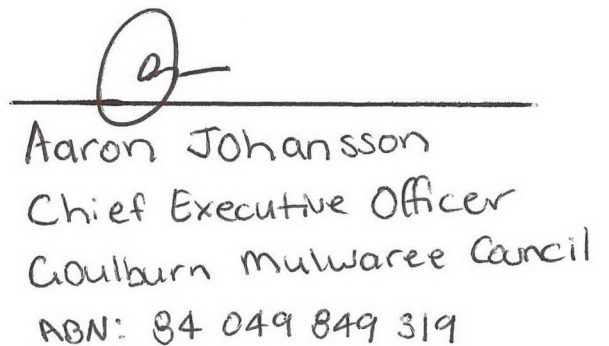 Aaron Johansson
Chief Executive Officer
Goulburn Mulwaree Council
ABN: 84 049 849 319